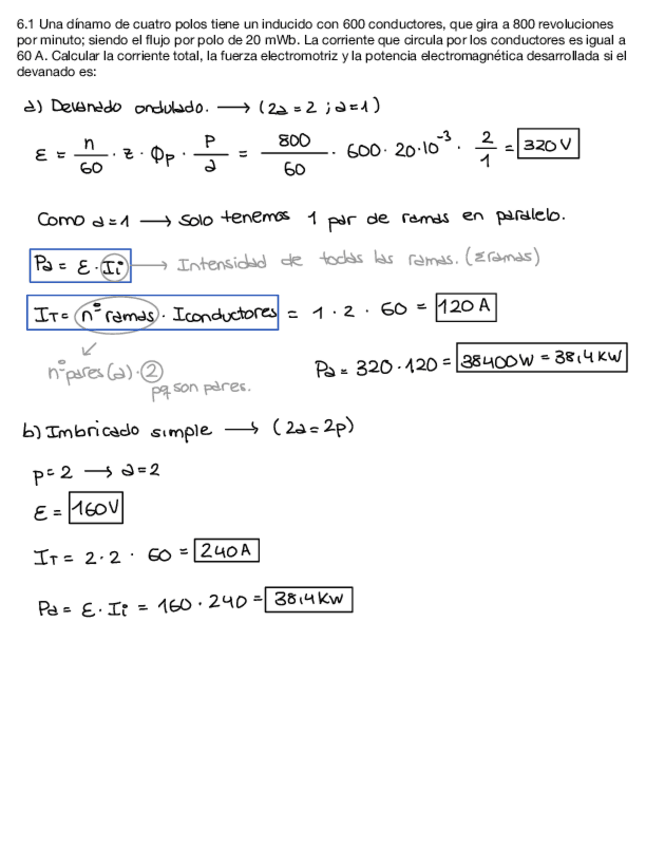 6.1 Una dínamo de cuatro polos tiene un inducido con 600 conductores, que gira a 800 revoluciones
por minuto; siendo el flujo por polo de 20 mWb. La corriente que circula por los conductores es igual a
60 A. Calcular la corriente total, la fuerza electromotriz y la potencia electromagnética desarrollada si el
devanado es:
a) Devanado ondulado. → (2a = 2 ; a = 1)
ε = n/60 · z · Φp · P/a = 800/60 · 600 · 20·10⁻³ · 2/1 = 320 V
Como a = 1 → Solo tenemos 1 par de ramas en paralelo.
Pa = ε · Ii → Intensidad de todas las ramas. (Σramas)
IT = nº ramas · Iconductores = 1 · 2 · 60 = 120 A
nº pares (a) · 2
pq son pares.
Pa = 320 · 120 = 38400 W = 38,4 KW
b) Imbricado simple → (2a = 2p)
p = 2 → a = 2
ε = 160 V
IT = 2 · 2 · 60 = 240 A
Pa = ε · Ii = 160 · 240 = 38,4 KW